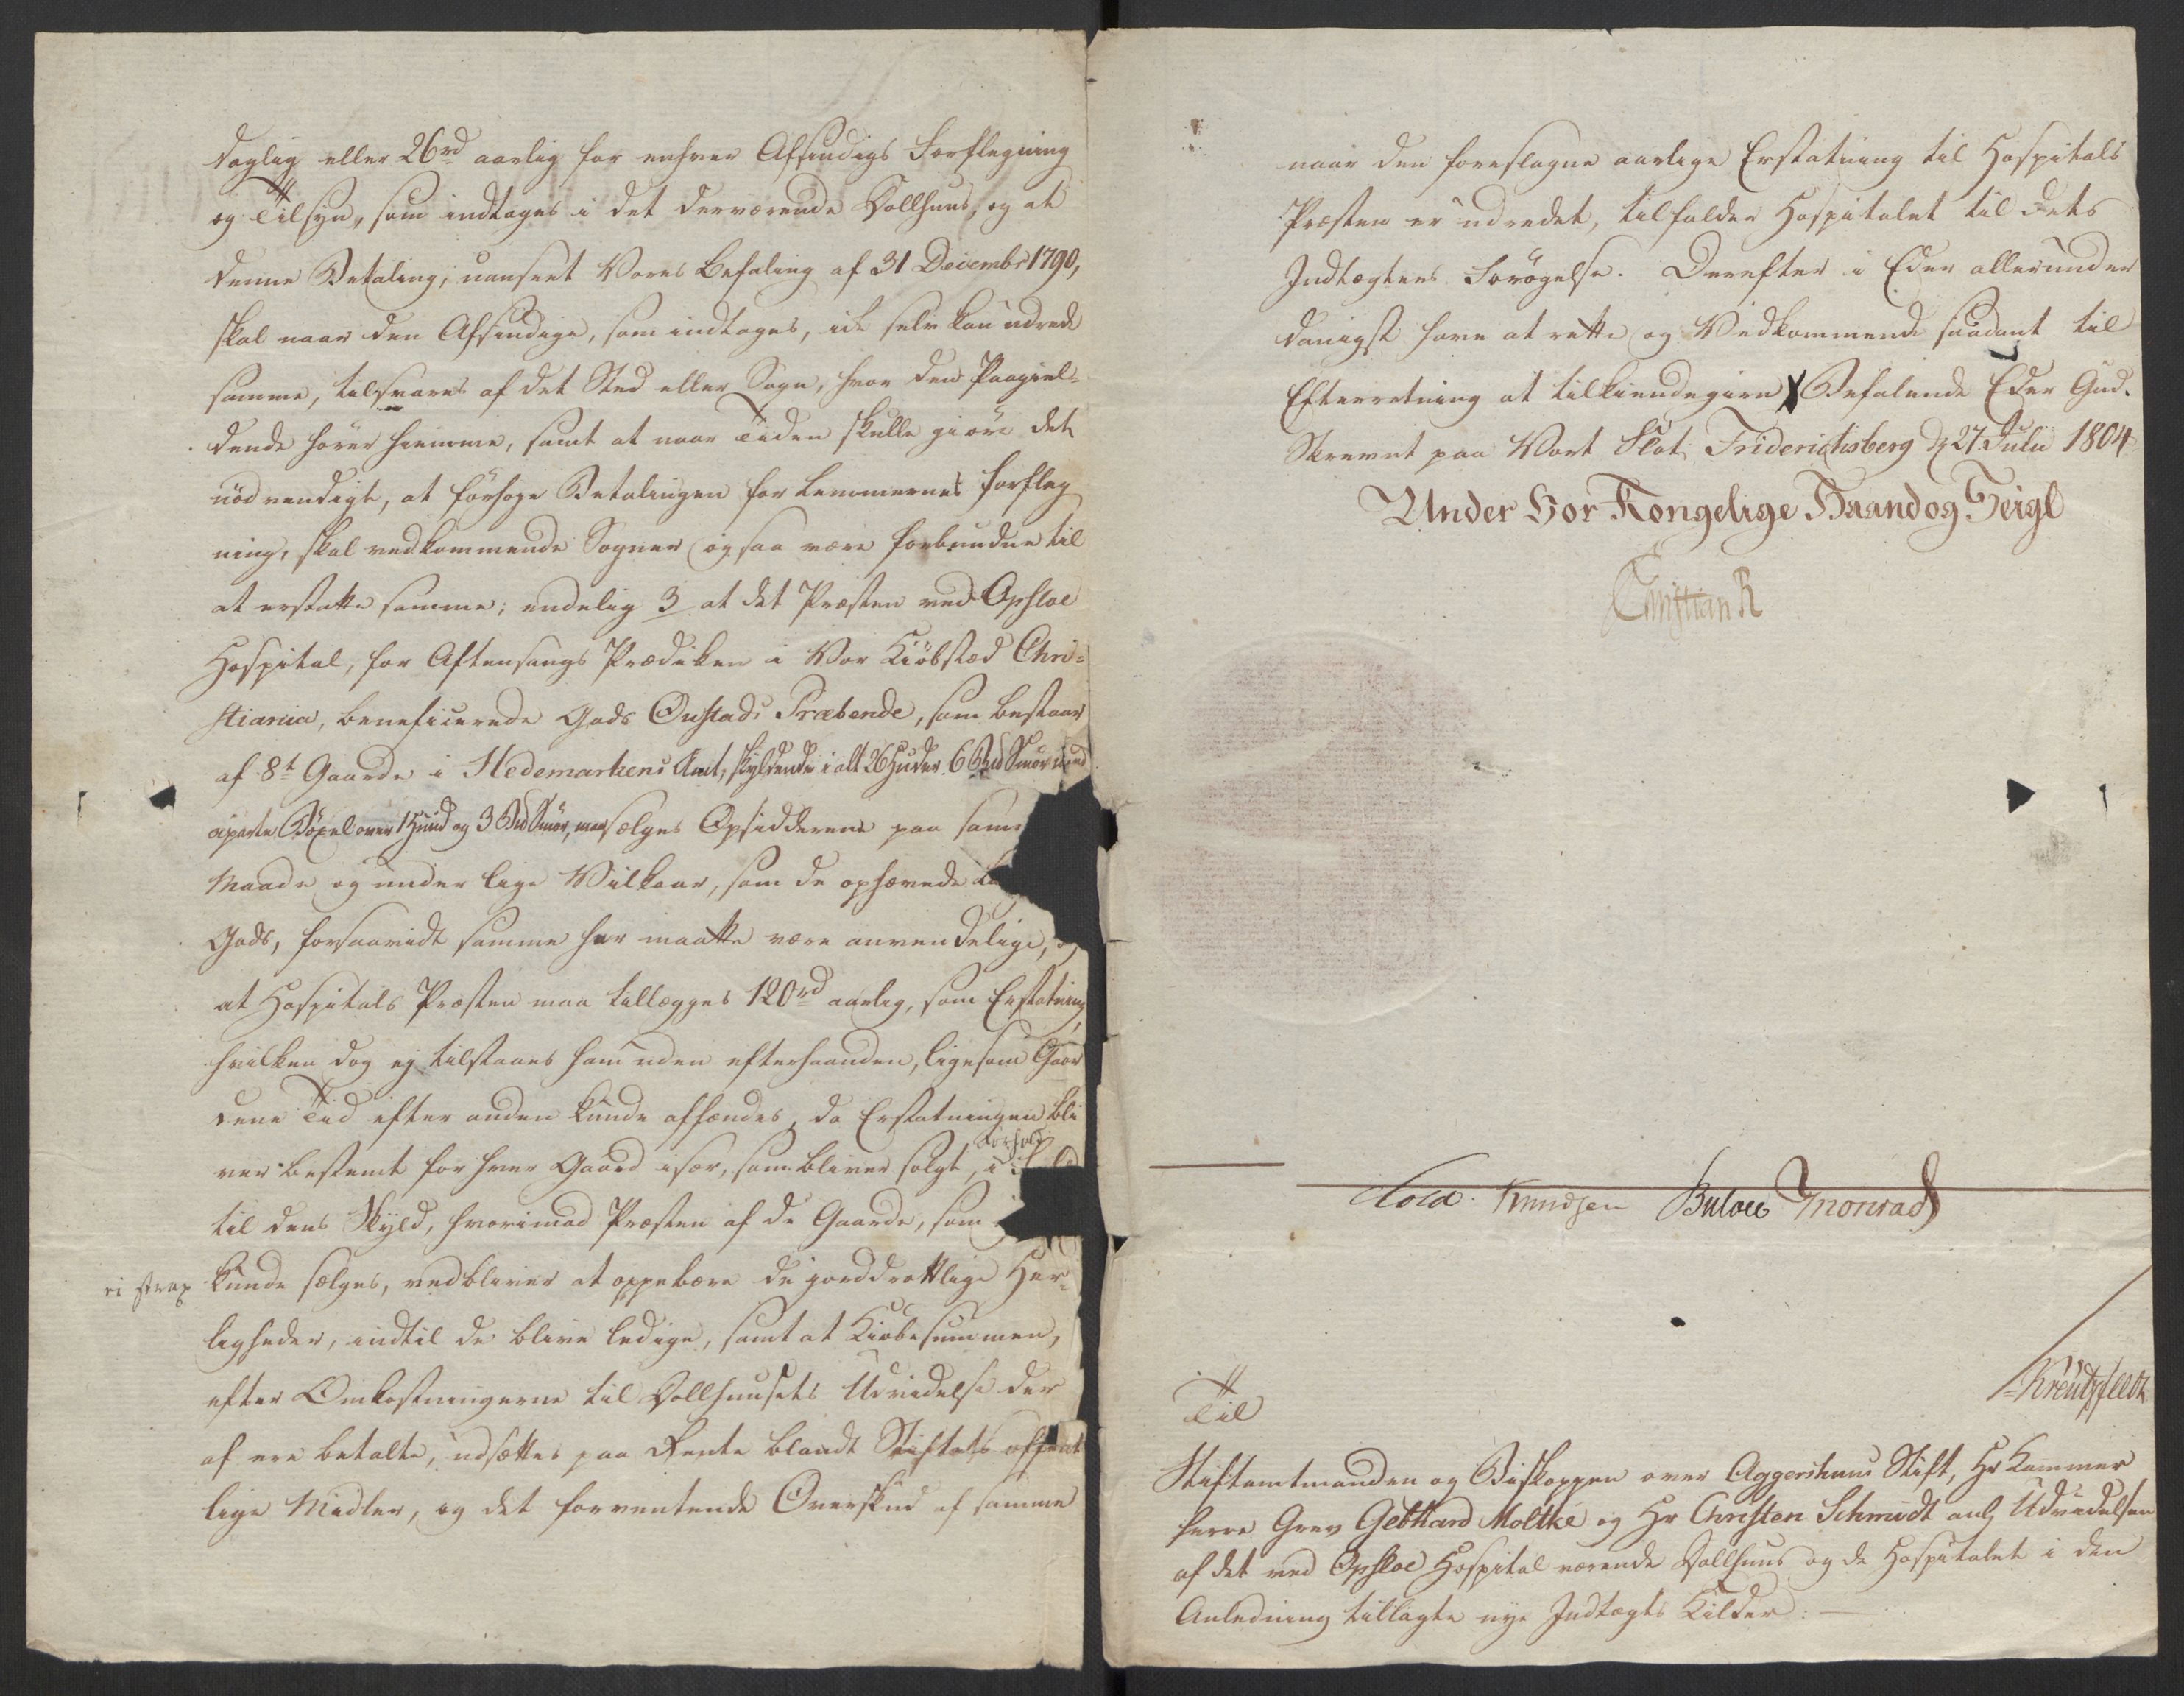 daglig eller 26 rd aarlig for enhver Afsindigs Forflegning
og Tilsyn, som indtages i det derværende Dollhuus, og at
denne Betaling, uanseet Vores Befaling af 31 Decembr 1790,
skal naar den Afsindige, som indtages, ick selv kan udrede
samme, tilsvares af det Sted eller Sogn, hvor den Paagiel-
dende hører hiemme, samt at naar Tiden skulle giøre det
nødvendigt, at forhøye Betalingen for Lemmernes Forfleg
ning, skal vedkommende Sogner ogsaa være forbundne til
at erstatte samme; endelig 3 at det Præsten ved Opsloe
Hospital, for Aftensangs Prædiken i Vor Kiøbstæd Chri-
stiania, beneficerede Gods Onstads Præbende, som bestaar
af 8t Gaarde i Hedemarkens Amt, skyldende i alt 26 Huder 6 Bd Smør
aparte Bøxel over 1 Huud og 3 Bd Smør, maa sælges Opsidderne paa sam
Maade og under lige Vilkaar, som de ophævede
Gods, forsaavidt samme her maatte være anvendelige, og
at Hospitals Præsten maa tillægges 120 rd aarlig, som Erstatning
hvilken dog ej tilstaaes ham uden efterhaanden, ligesom Gaar
dene Tid efter anden kunde afhændes, da Erstatningen bli
ver bestemt for hver Gaard især, som bliver solgt, i Forhold
til dens Skyld, hvorimod Præsten af de Gaarde, som
ei strax kunde sælges, vedbliver at oppebære de jorddrottlige Her-
ligheder, indtil de blive ledige, samt at Kiøbesummen,
efter Omkostningerne til Dollhuusets Udvidelse der
af ere betalte, udsættes paa Rente blandt Stiftets offent
lige Midler, og det forventende Overskud af samme
naar den foreslagne aarlige Erstatning til Hospitals
Præsten er udredet, tilfalder Hospitalet til dets
Indtægters Forøgelse. Derefter i Eder allerunder
danigst have at rette og Vedkommende saadant til
Efterretning at tilkiendegive Befalende Eder Gud.
Skrevet paa Vort Slot Friderichsberg d 27 Julii 1804
Under Vor Kongelige Haand og Seigl
Christian R
Cold. Knudsen Bülow Monrad
Kreutzfeldt
Til
Stiftamtmanden og Biskoppen over Aggershuus Stift, Hr Kammer
herre Grev Gebhard Moltke og Hr Christen Schmidt anlg Udvidelsen
af det ved Opsloe Hospital værende Dollhuus og de Hospitalet i den
Anledning tillagte nye Indtægts Kilder: